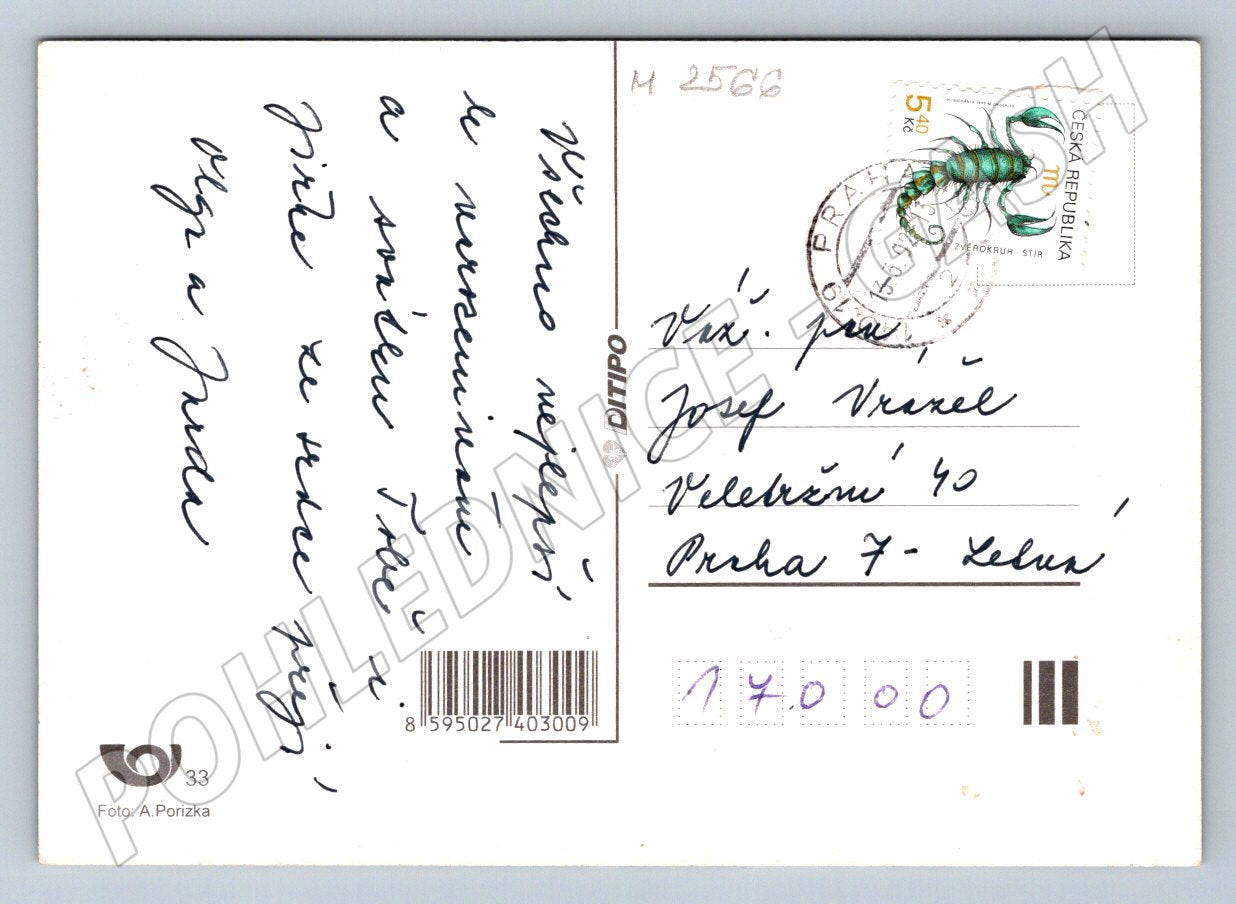 M 2566
Všechno nejlepší
k narozeninám
a svátku Tobě i
Jirke ze srdce přejí
Olga a Jarda
5,40
Kč
ČESKÁ REPUBLIKA
ZVĚROKRUH - ŠTÍR
PRAHA
Váž. pan
Josef Vrázěl
Veletržní 40
Praha 7 - Letná
170 00
DITIPO
8 595027 403009
33
Foto: A.Porizka
POHLEDNICE - GASH